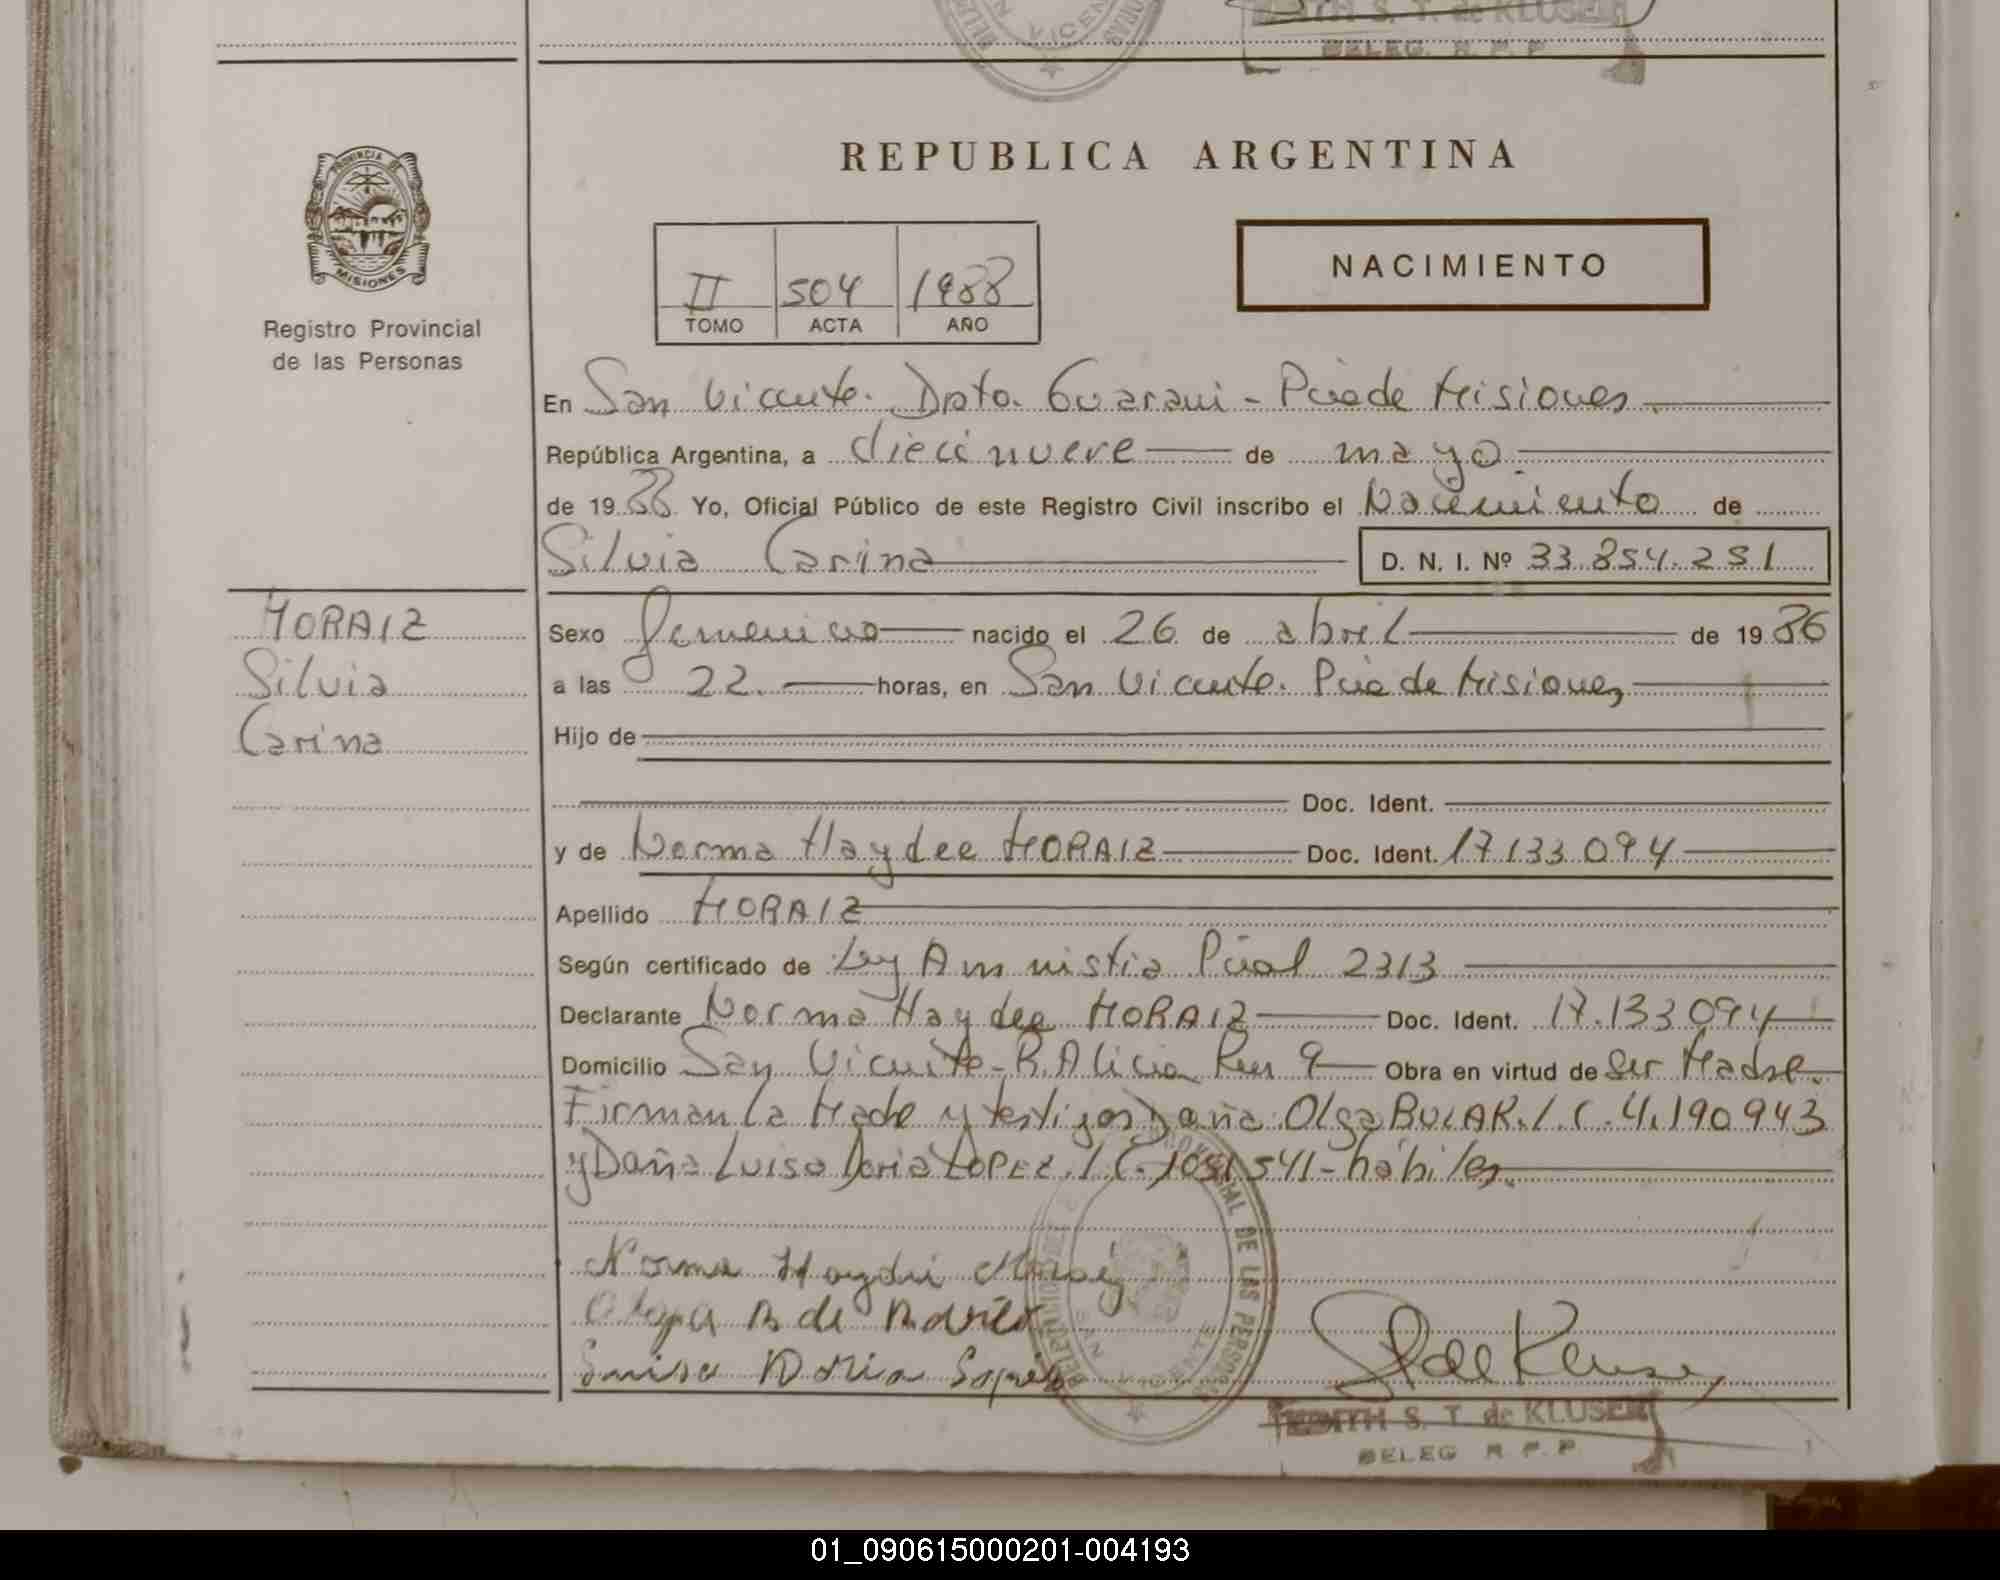 EDITH S. T. de KLUSER
DELEG. R. P. P
SAN VICENTE
REPUBLICA ARGENTINA
PROVINCIA DE
MISIONES
Registro Provincial
de las Personas
II 504 1988
TOMO ACTA AÑO
NACIMIENTO
En San Vicente. Dpto. Guarani - Pcia de Misiones.
República Argentina, a diecinueve de mayo.
de 1988 Yo, Oficial Público de este Registro Civil inscribo el Nacimiento de
Silvia Carina D. N. I. Nº 33.854.251
MORAIZ
Silvia
Carina
Sexo femenino nacido el 26 de abril de 1986
a las 22. horas, en San Vicente. Pcia de Misiones
Hijo de
Doc. Ident.
y de Norma Haydee MORAIZ Doc. Ident. 17.133.094
Apellido MORAIZ
Según certificado de Ley Amnistia Pcial 2313
Declarante Norma Haydee MORAIZ Doc. Ident. 17.133.094
Domicilio San Vicente - B. Alicia Km 9 Obra en virtud de ser Madre.
Firman la Madre y testigos Doña Olga BULAR. L.C. 4.190.943
y Doña Luisa Doria LOPEZ. L.C. 1051541 - hábiles.
Norma Haydee
Olga B de
Luisa Doria
DELEGACION PROVINCIAL DE LAS PERSONAS
SAN VICENTE
S. de Kluser
EDITH S. T. de KLUSER
DELEG R. P. P
01_090615000201-004193